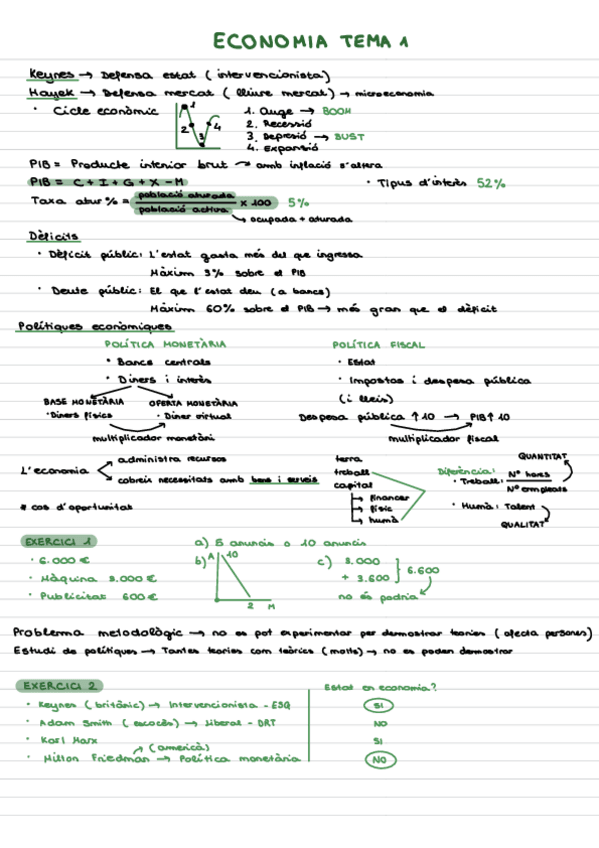 ECONOMIA TEMA 1
Keynes → Defensa estat (intervencionista)
Hayek → Defensa mercat (lliure mercat) → microeconomia
· Cicle econòmic
1
2
3
4
1. Auge → BOOM
2. Recessió
3. Depresió → BUST
4. Expansió
PIB = Producte interior brut → amb inflació s'altera
PIB = C + I + G + X - M
· Tipus d'interès 52%
Taxa atur % = població aturada / població activa x 100 5%
ocupada + aturada
Dèficits
· Dèficit públic: L'estat gasta més del que ingressa
Màxim 3% sobre el PIB
· Deute públic: El que l'estat deu (a bancs)
Màxim 60% sobre el PIB → més gran que el dèficit
Polítiques econòmiques
POLÍTICA MONETÀRIA
· Bancs centrals
· Diners i interès
BASE MONETÀRIA
· Diners físics
OFERTA MONETÀRIA
· Diner virtual
multiplicador monetàri
POLÍTICA FISCAL
· Estat
· Impostos i despesa pública
(i lleis)
Despesa pública ↑ 10 → PIB ↑ 10
multiplicador fiscal
L'economia
administra recursos
cobreix necessitats amb bens i serveis
* cos d'oportunitat
terra
treball
capital
financer
físic
humà
QUANTITAT
Diferència:
· Treball: Nº hores / Nº empleats
· Humà: Talent
QUALITAT
EXERCICI 1
· 6.000 €
· Màquina 3.000 €
· Publicitat 600 €
a) 5 anuncis o 10 anuncis
b) A
10
2 M
c) 3.000
+ 3.600
6.600
no es podria
Problema metodològic → no es pot experimentar per demostrar teories (afecta persones)
Estudi de polítiques → Tantes teories com teòrics (molts) → no es poden demostrar
EXERCICI 2
Estat en economia?
· Keynes (britànic) → Intervencionista - ESQ
SI
· Adam Smith (escocès) → liberal - DRT
NO
· Karl Marx
SI
(americà)
· Milton Friedman → Política monetària
NO